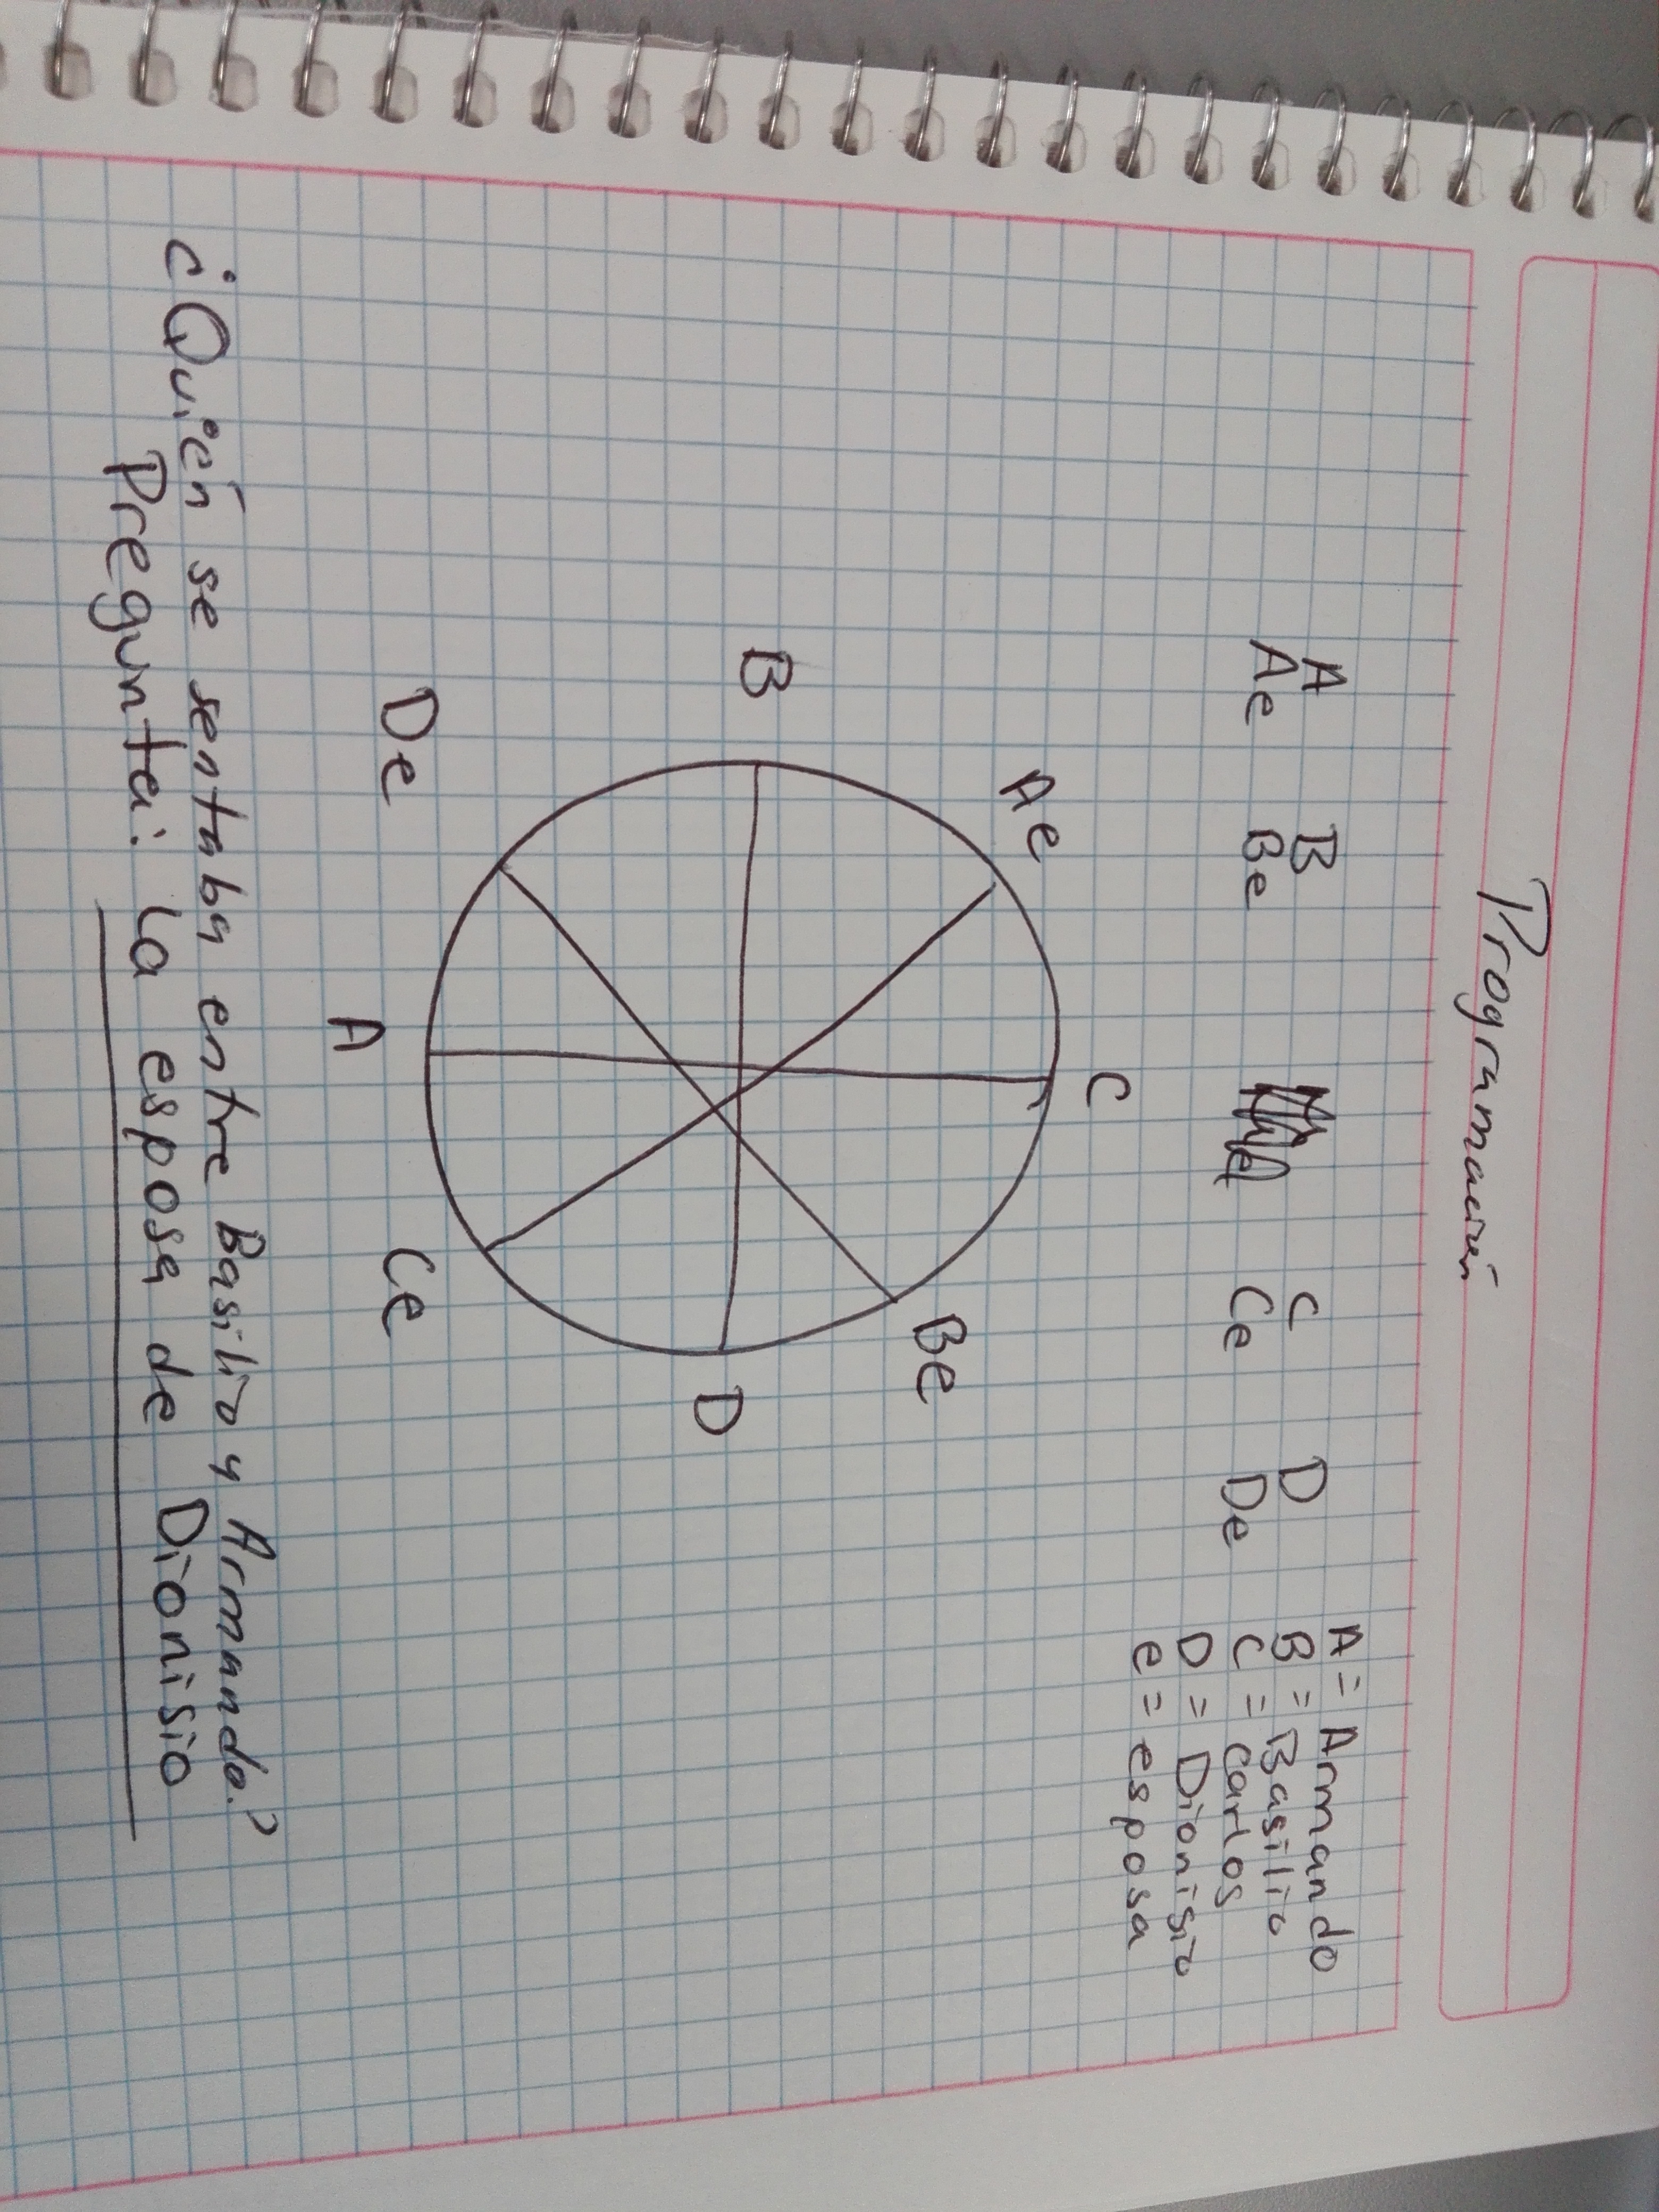 Programación
A B C D
Ae Be Ce De
A = Armando
B = Basilio
C = Carlos
D = Dionisio
e = esposa
C
Ae Be
B D
De Ce
A
¿Quién se sentaba entre Basilio y Armando?
Pregunta: La esposa de Dionisio